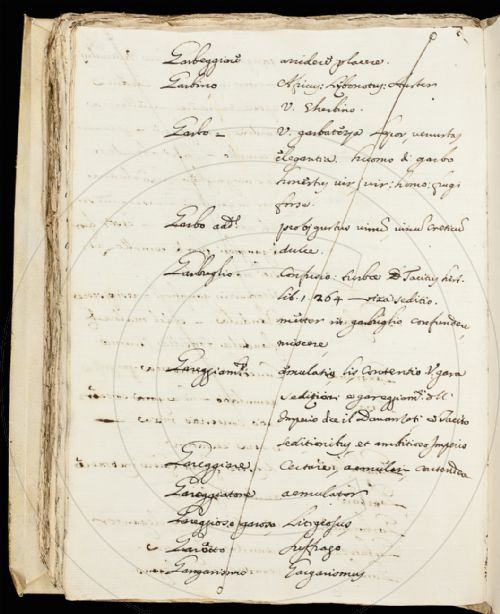 Garbeggiare arridere placere.
Garbino Africus: Lybonotus: Auster
V. Gherbino.
Garbo — V. garbatezza lepor, venustas
elegantia. huomo di garbo
honestus vir: homo: frugi
Garbo add. vinum creticum
dulce.
Garbuglio. Confusio: turbae Tacitus hist.
lib. 1. 264 — rixa seditio.
metter in garbuglio confundere,
miscere
Gareggiam.to aemulatio, lis, Contentio V. gara
seditioni e gareggiam.ti
Imperio dice il Davanzati Tacito
seditionibus et Imperio
Gareggiare. Certare, aemulari contendere
Gareggiatore aemulator
Gareggioso garoso Litigiosus
Garetto suffrago
Gargarismo Gargarismus